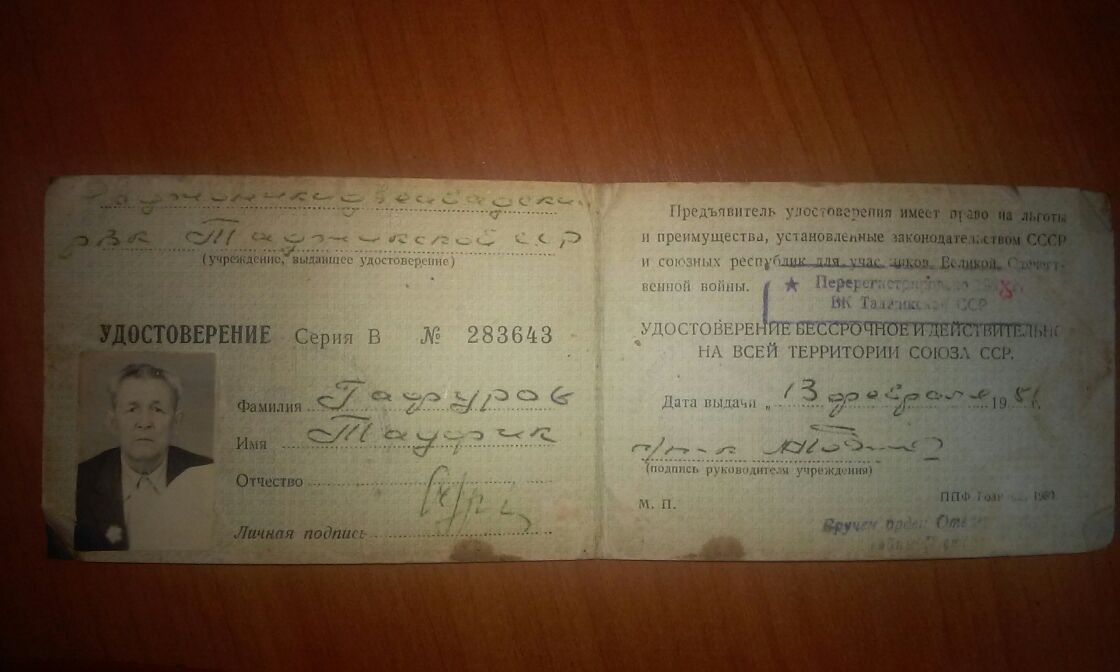 рвк Таджикской ССР
(учреждение, выдавшее удостоверение)
УДОСТОВЕРЕНИЕ Серия В № 283643
Фамилия Гафуров
Имя Тауфик
Отчество
Личная подпись
Предъявитель удостоверения имеет право на льготы
и преимущества, установленные законодательством СССР
и союзных республик для участников Великой Отечест-
венной войны.
★ Перерегистрировано
ВК Таджикской ССР
УДОСТОВЕРЕНИЕ БЕССРОЧНОЕ И ДЕЙСТВИТЕЛЬНО
НА ВСЕЙ ТЕРРИТОРИИ СОЮЗА ССР.
Дата выдачи „ 13 февраля 198 г.
(подпись руководителя учреждения)
М. П.
ППФ Гознака.
Вручен орден